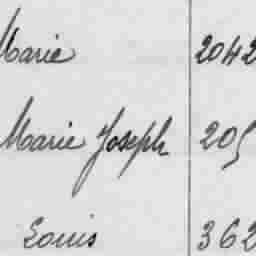 Marie 2042
Marie Joseph 205
Louis 362